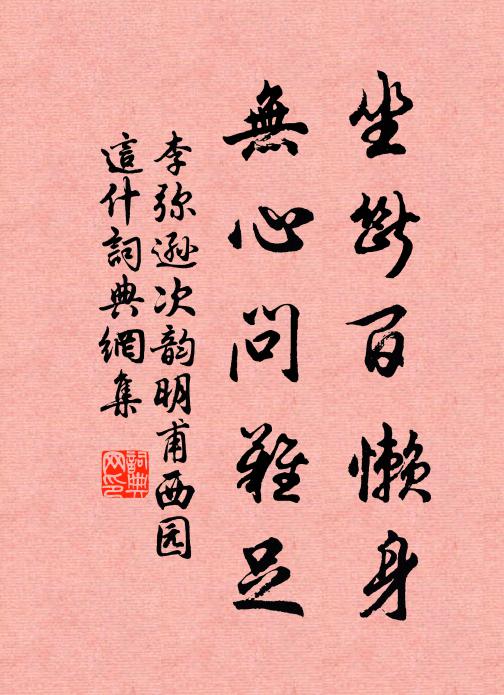 坐断百懒身
無心问難足
李弥逊次韵明甫西园
這什詞典網集
詞典
网印